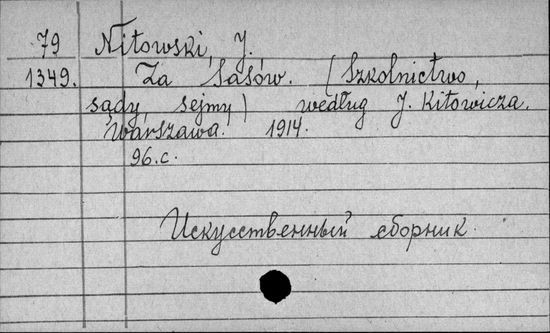 79 Nitowski, J.
1349. Za Sasów. (Szkolnictwo,
sądy, sejmy) według J. Kitowicza.
Warszawa. 1914.
96.c.
Искусственный сборник